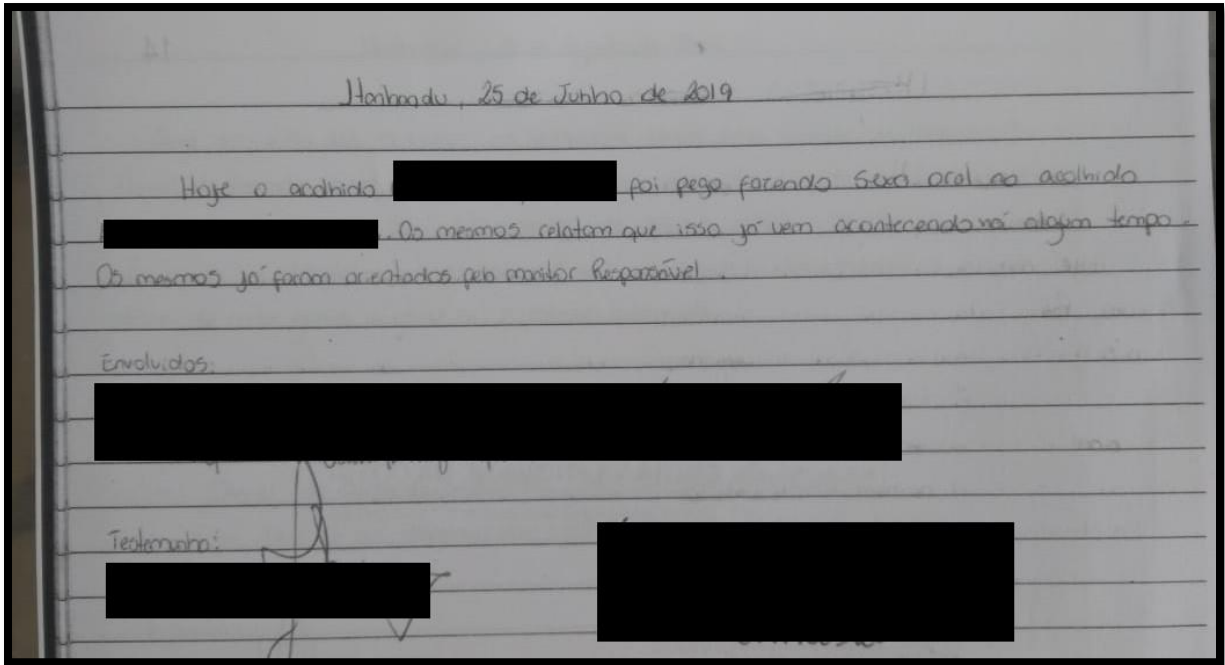 Itanhandu, 25 de Junho de 2019
Hoje o acolhido foi pego fazendo sexo oral no acolhido
. Os mesmos relatam que isso já vem acontecendo há algum tempo.
Os mesmos já foram orientados pelo monitor Responsável.
Envolvidos:
Testemunha: